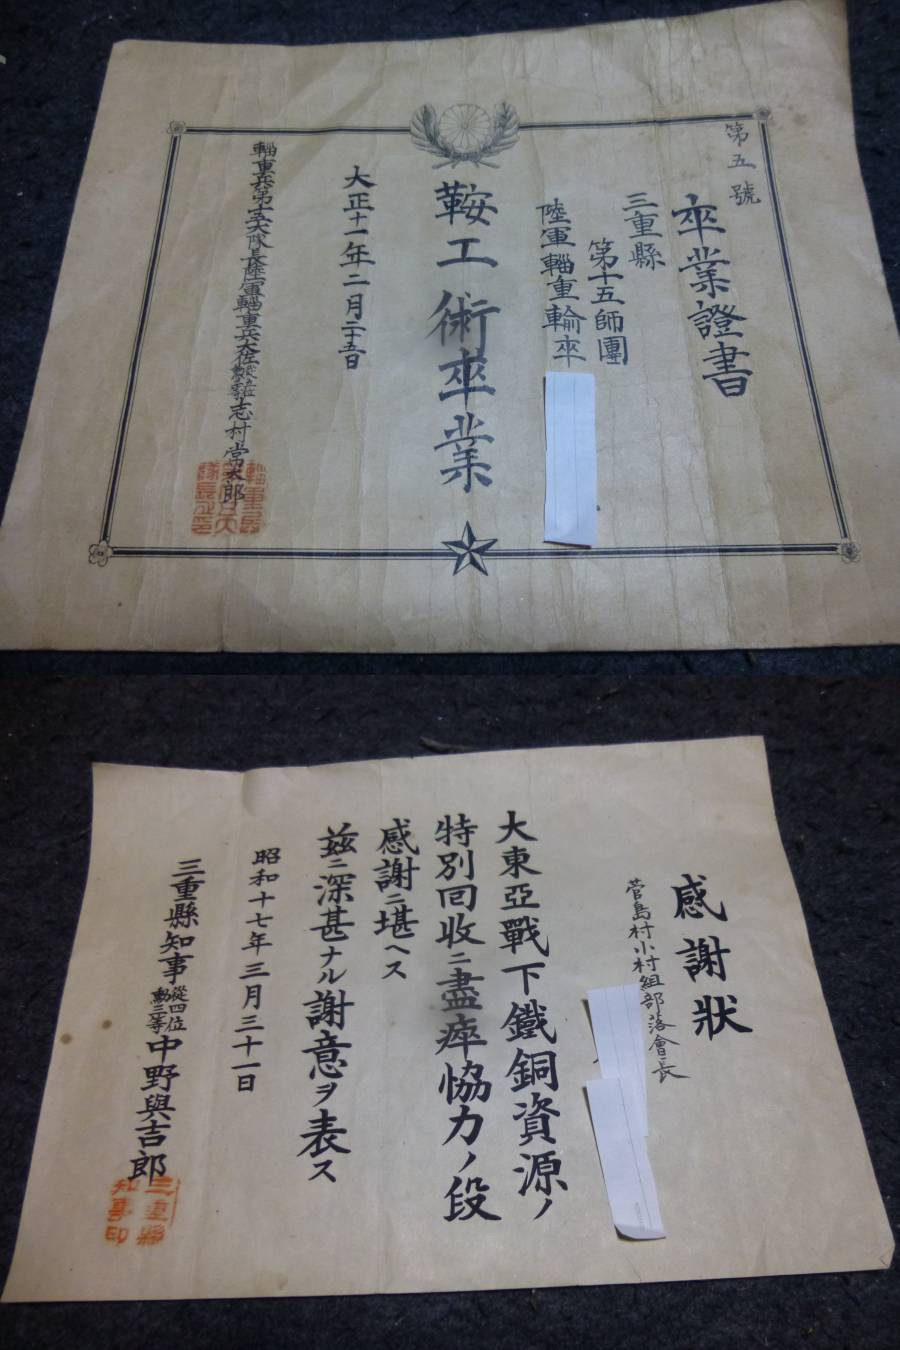 第五號
卒業證書
三重縣
第十五師團
陸軍輜重輸卒
鞍工術卒業
大正十一年二月二十五日
輜重兵第十五大隊長陸軍輜重兵大佐 志村常太郎
感謝狀
菅島村小村組部落會長
大東亞戰下鐵銅資源ノ
特別回收ニ盡瘁協力ノ段
感謝ニ堪ヘス
茲ニ深甚ナル謝意ヲ表ス
昭和十七年三月三十一日
三重縣知事從四位勳三等中野與吉郎
三重縣知事印